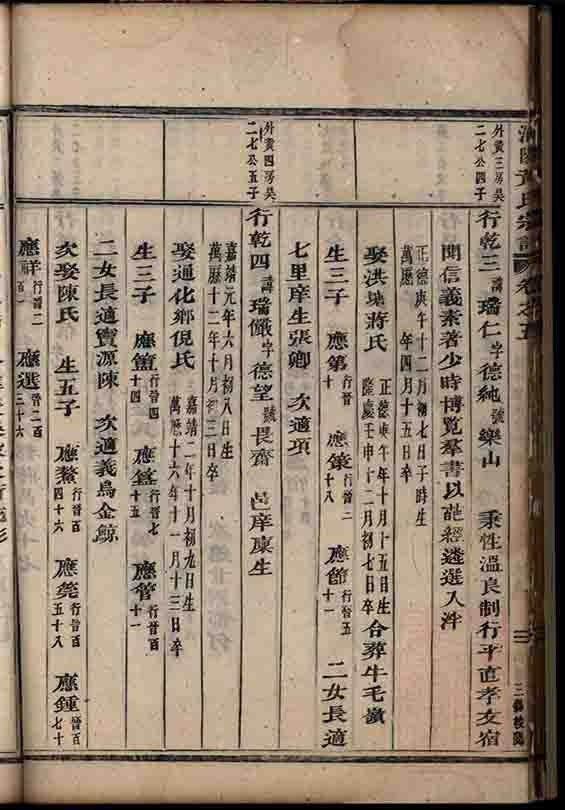 黄氏宗譜 卷之五
三
外黄三房吴
二七公四子
行乾三 諱瑞仁 字德純 號樂山 秉性溫良制行平直孝友宿
聞信義素著少時博覽羣書以葩經遴選入泮
正德庚午十二月初七日子時生
萬歷 年四月十五日卒
娶洪塘蔣氏 正德庚午年十月十五日生 合葬牛毛嶺
隆慶壬申十二月初七日卒
生三子 應第 行晉十 應策 行晉二十八 應節 行晉五十一 二女長適
七里庠生張卿 次適項
外黄四房吴
二七公五子
行乾四 諱瑞儀 字德望 號畏齋 邑庠廩生
嘉靖元年六月初八日生
萬歷十二年十月初三日卒
娶通化鄉倪氏 嘉靖二年十月初九日生
萬歷十六年十一月十三日卒
生三子 應簠 行晉十四 應簋 行晉七十五 應管 行晉百十一
二女長適寶源陳 次適義烏金鯨
次娶陳氏 生五子 應鰲 行晉百四十六 應筦 行晉百五十八 應鍾 晉百七十
應祥 行晉二百一 應選 晉二百三十六